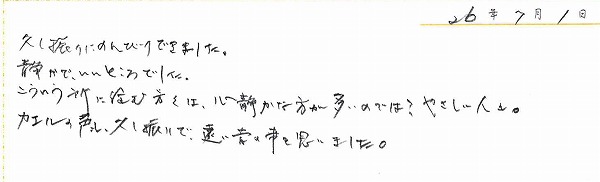 26年7月1日
久し振りにのんびりできました。
静かで、いいところでした。
こういう所に住む方々は、心静かな方が多いのでは？やさしい人々。
カエルの声も、久し振りで、遠い昔の事を思いました。